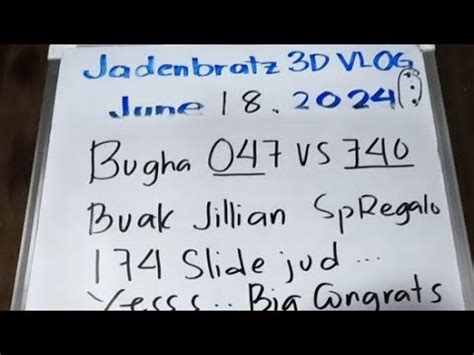 Jadenbratz 3D VLOG
June 18. 2024
Bugha 047 vs 740
Buak Jillian SpRegalo
174 Slide jud ...
Yesss.. Big Congrats